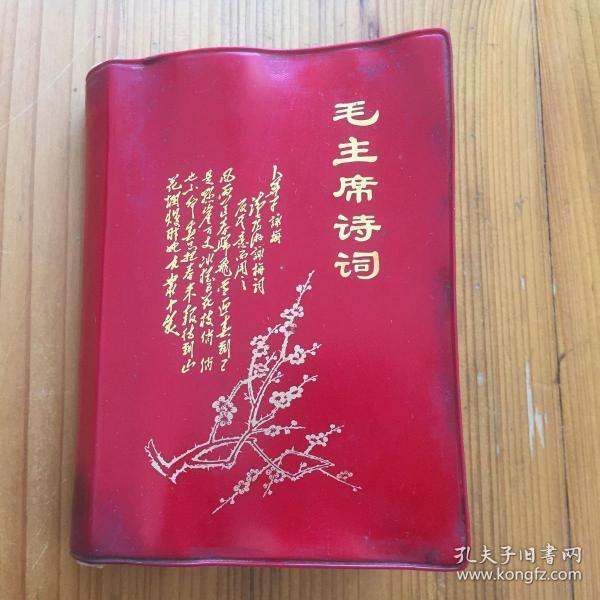 毛主席诗词
卜算子 咏梅
读陆游咏梅词
反其意而用之
风雨送春归飞雪迎春到已
是悬崖百丈冰犹有花枝俏俏
也不争春只把春来报待到山
花烂漫时她在丛中笑
孔夫子旧書网
www.kongfz.com